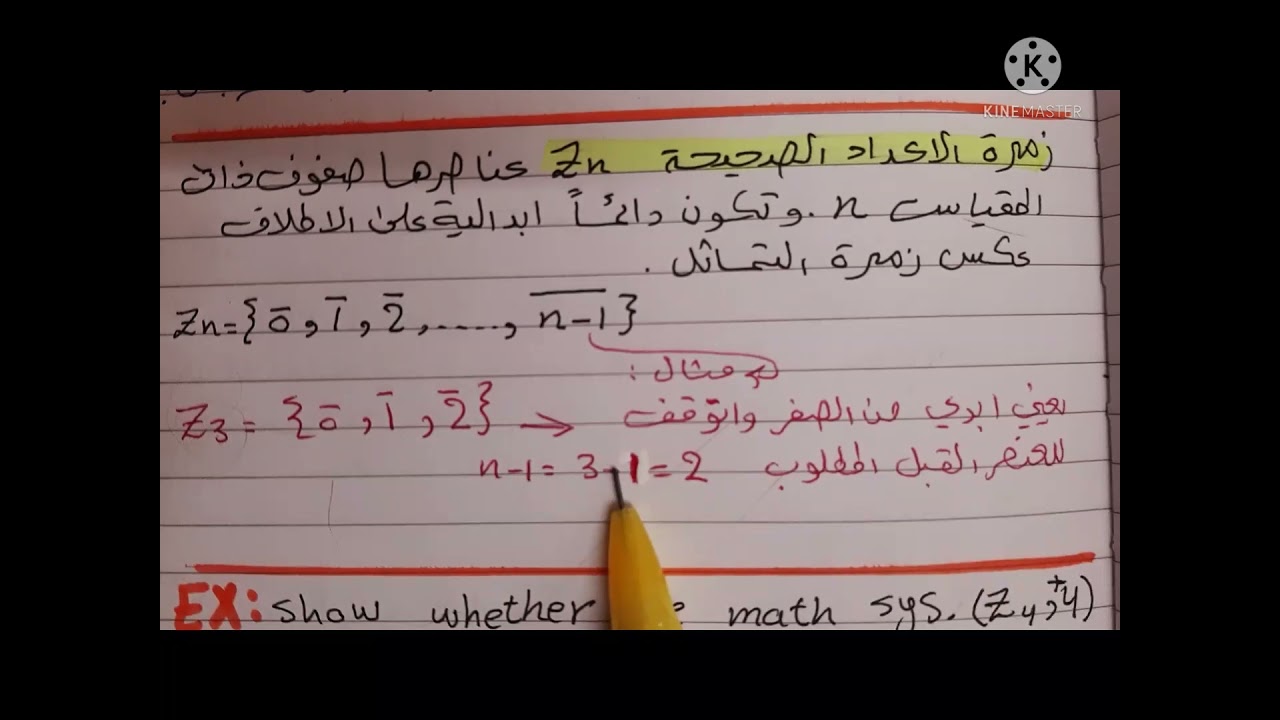 KINEMASTER
زمرة الاعداد الصحيحة Zn عناصرها صفوف ذات
المقياس n. وتكون دائماً ابدالية على الاطلاق
عكس زمرة التماثل .
Zn={0̅ , 1̅ , 2̅ , ....., n-1̅}
مثال :
Z3 = {0̅ , 1̅ , 2̅} → يعني ابدي من الصفر واتوقف
n-1 = 3-1 = 2 للعنصر القبل المطلوب
EX: show whether math sys. (Z4, +4)